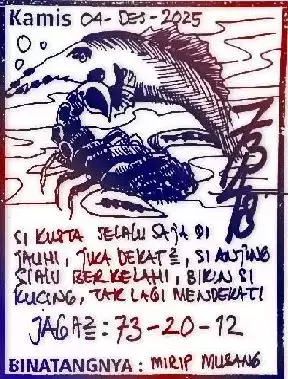 Kamis 04-DES-2025
SI KUSTA SELALU SAJA DI
JAUHI, JIKA DEKAT², SI ANJING
SIALU BERKELAHI, BIKIN SI
KUCING, TAK LAGI MENDEKATI
JAGA²: 73-20-12
BINATANGNYA: MIRIP MUSANG